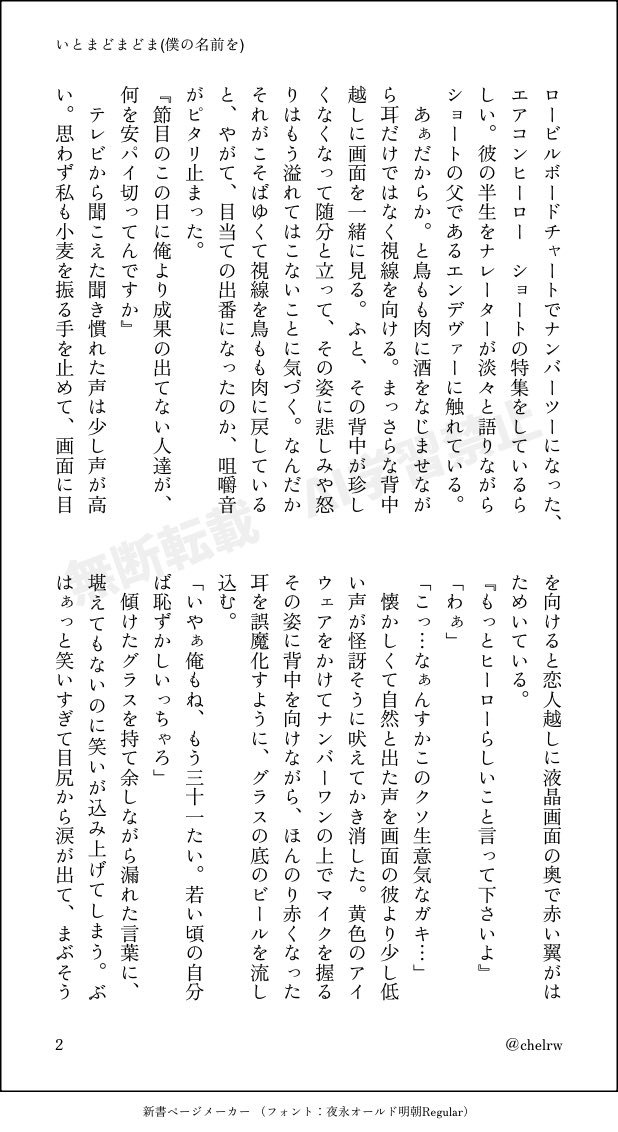 いとまどまどま(僕の名前を)
ロービルボードチャートでナンバーツーになった、
エアコンヒーロー　ショートの特集をしているら
しい。彼の半生をナレーターが淡々と語りながら
ショートの父であるエンデヴァーに触れている。
　あぁだからか。と鳥もも肉に酒をなじませなが
ら耳だけではなく視線を向ける。まっさらな背中
越しに画面を一緒に見る。ふと、その背中が珍し
くなくなって随分と立って、その姿に悲しみや怒
りはもう溢れてはこないことに気づく。なんだか
それがこそばゆくて視線を鳥もも肉に戻している
と、やがて、目当ての出番になったのか、咀嚼音
がピタリ止まった。
『節目のこの日に俺より成果の出てない人達が、
何を安パイ切ってんですか』
　テレビから聞こえた聞き慣れた声は少し声が高
い。思わず私も小麦を振る手を止めて、画面に目
を向けると恋人越しに液晶画面の奥で赤い翼がは
ためいている。
『もっとヒーローらしいこと言って下さいよ』
「わぁ」
「こっ…なぁんすかこのクソ生意気なガキ…」
　懐かしくて自然と出た声を画面の彼より少し低
い声が怪訝そうに吠えてかき消した。黄色のアイ
ウェアをかけてナンバーワンの上でマイクを握る
その姿に背中を向けながら、ほんのり赤くなった
耳を誤魔化すように、グラスの底のビールを流し
込む。
「いやぁ俺もね、もう三十一たい。若い頃の自分
ば恥ずかしいっちゃろ」
　傾けたグラスを持て余しながら漏れた言葉に、
堪えてもないのに笑いが込み上げてしまう。ぶ
はぁっと笑いすぎて目尻から涙が出て、まぶそう
無断転載　AI学習禁止
2
@chelrw
新書ページメーカー （フォント：夜永オールド明朝Regular）